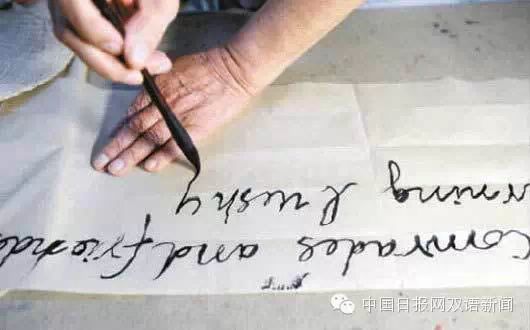 Comrades and friends
rning I rush
中国日报网双语新闻